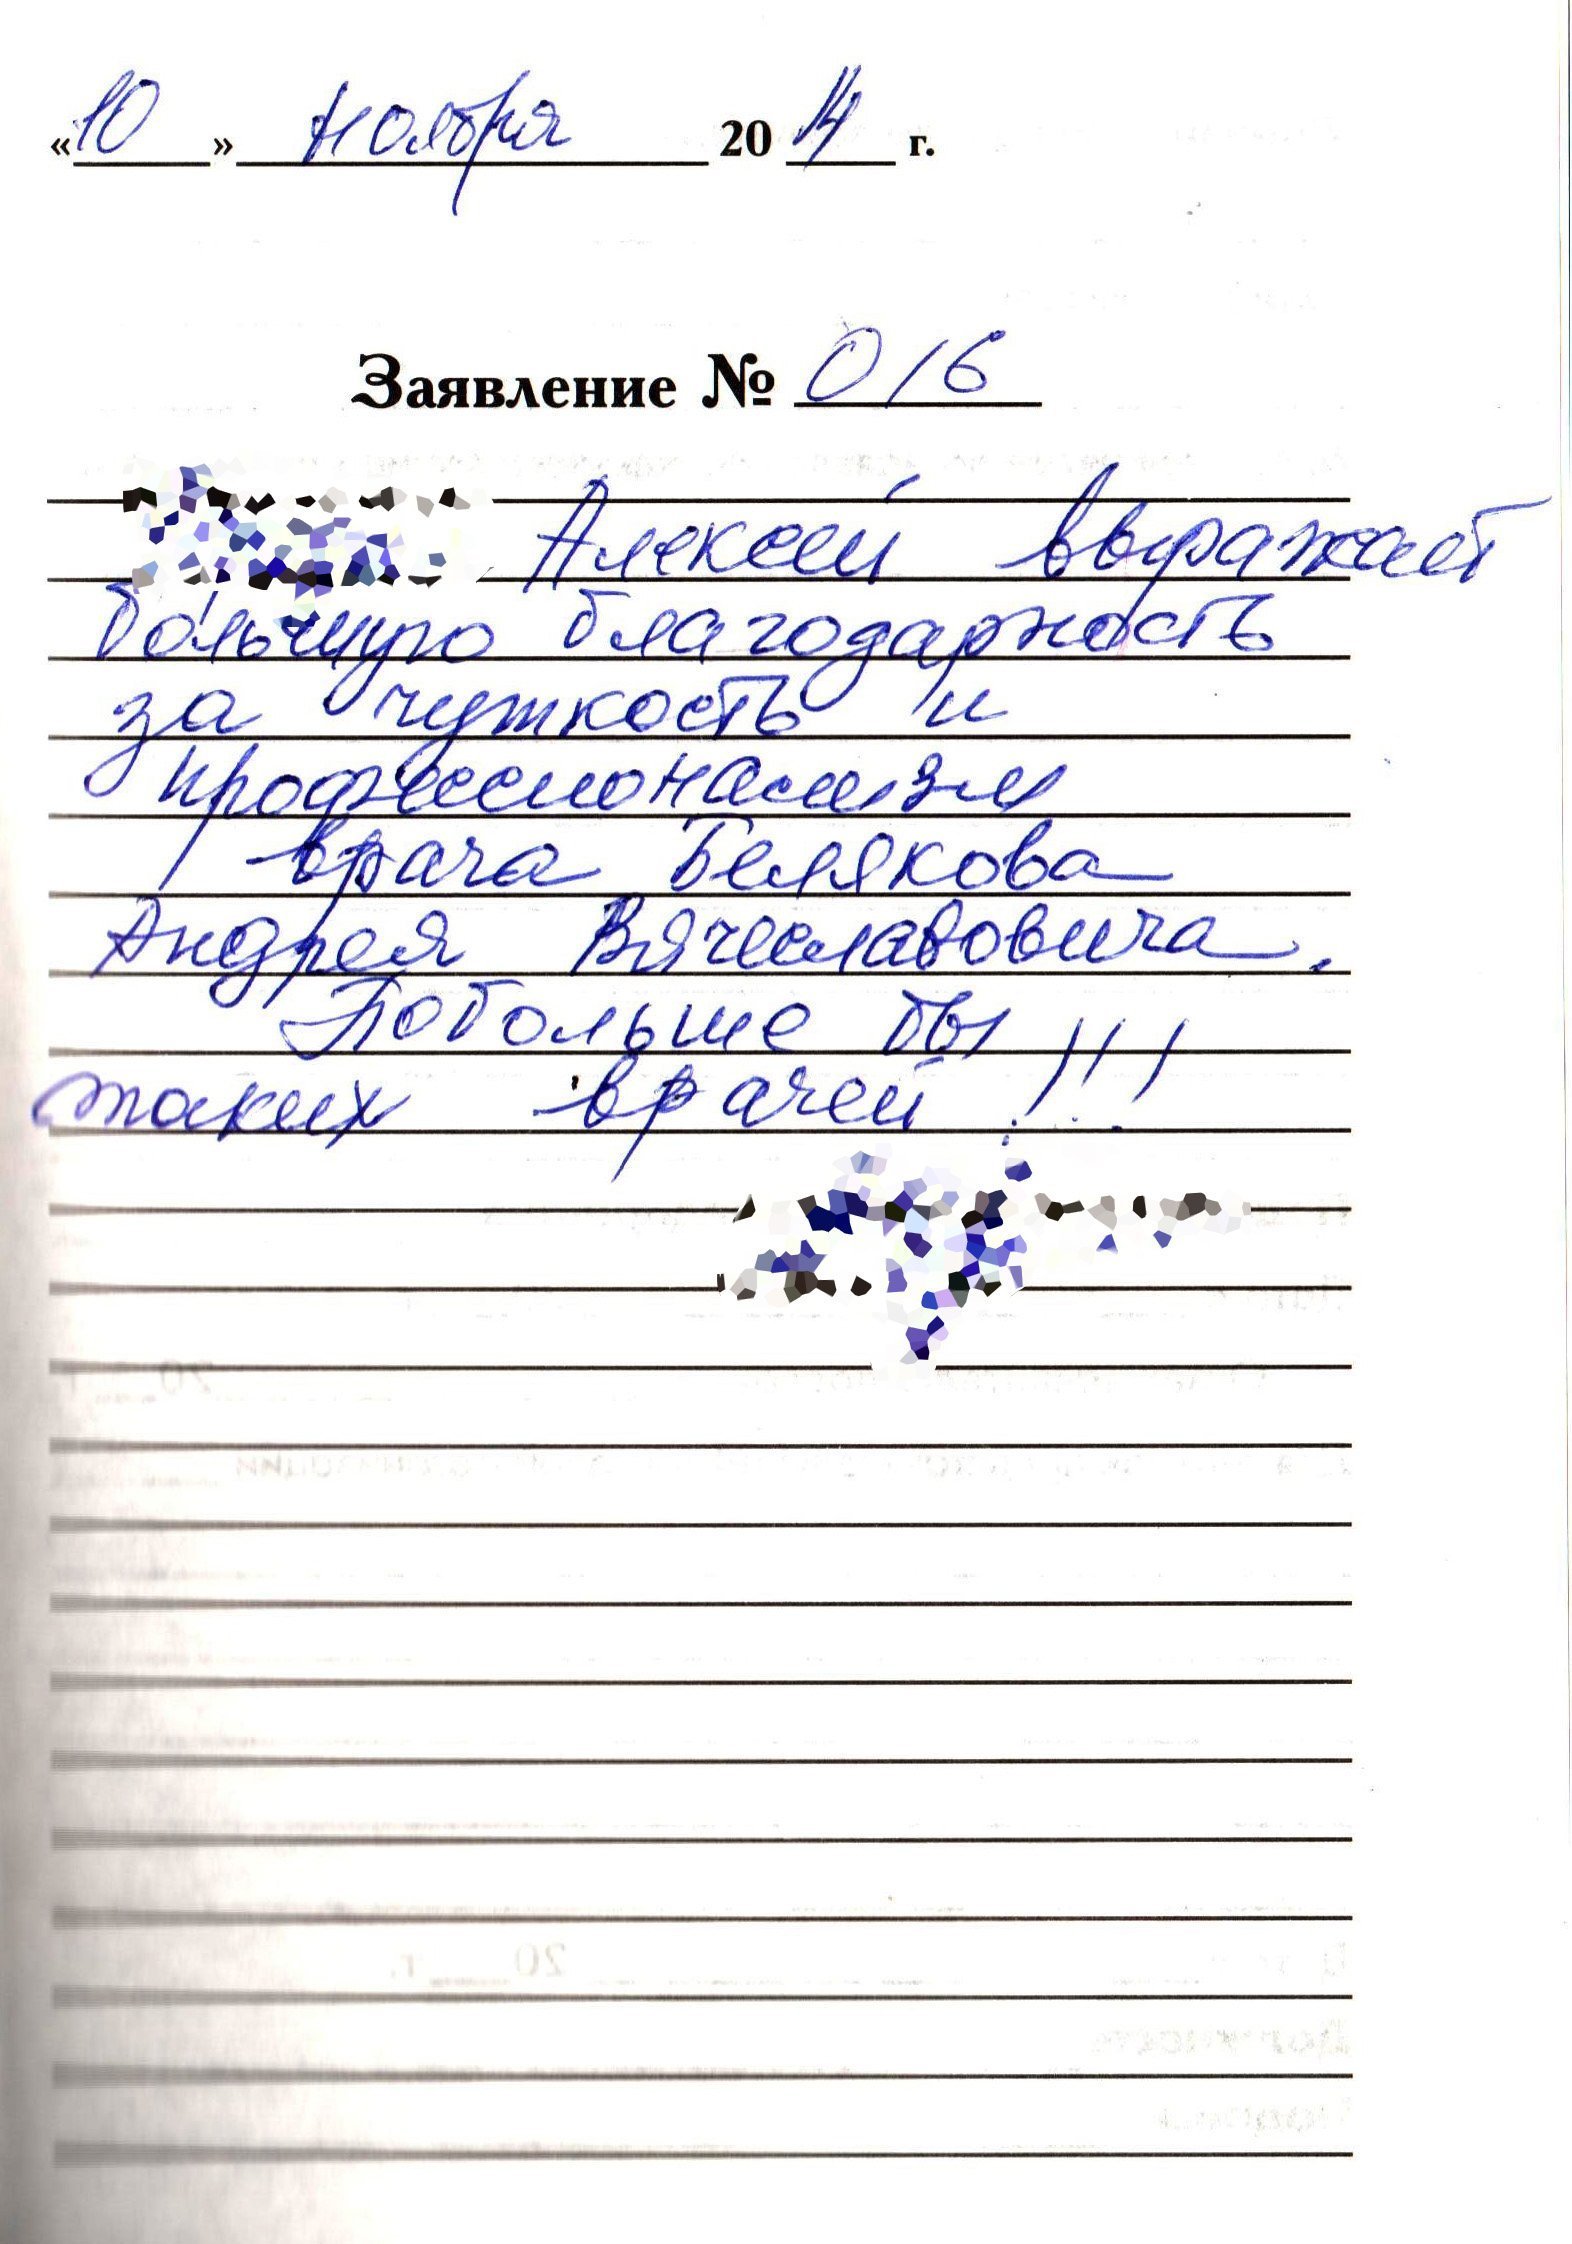 «10» ноября 2014 г.
Заявление № 016
Алексей выражает
большую благодарность
за чуткость и
профессионализм
врача Белякова
Андрея Вячеславовича.
Побольше бы
таких врачей!!!